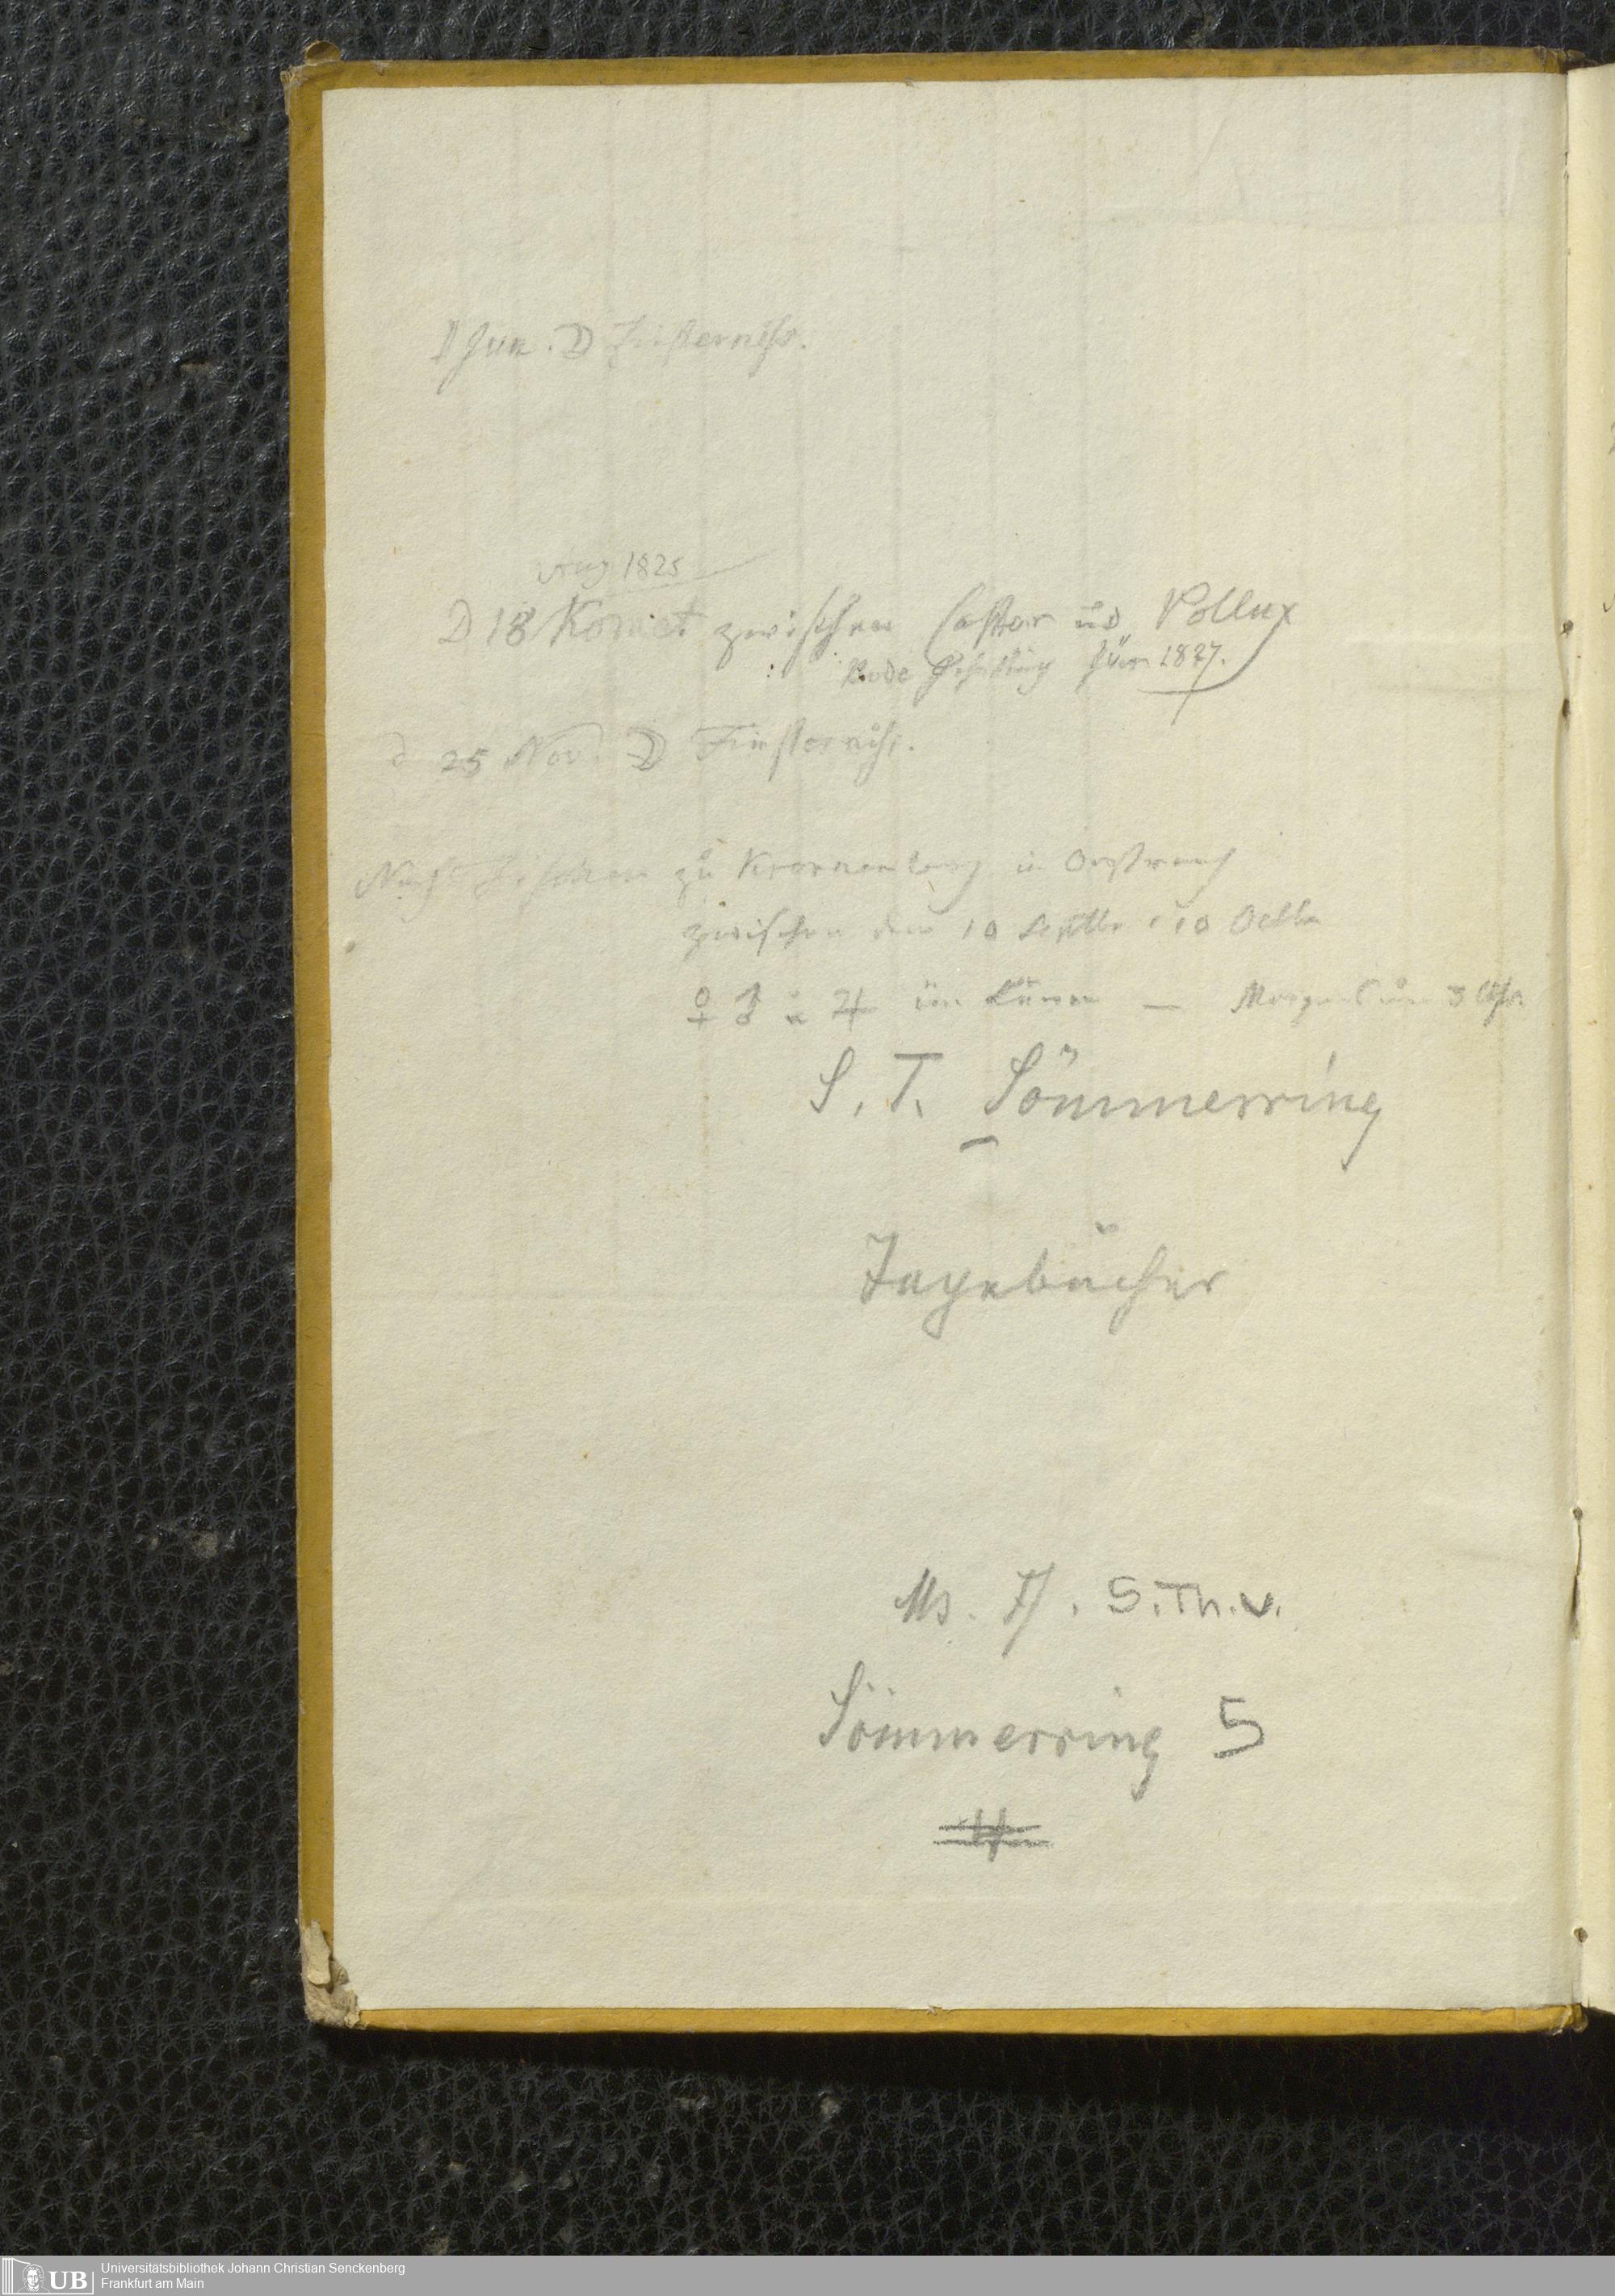 1 Jun. ☽ Finsterniß.
Aug 1825
D 18 Komet zwischen Castor ud Pollux
Bode für 1827.
d 25 Nov. ☽ Finsterniß.
Nach zu in
zwischen den 10 Septbr 10 Octbr
♀ ♂ u ♃ im Löwen — Morgens um 3 Uhr
S. T. Sömmerring
Tagebücher
Ms. Ff. S.Th.v.
Sömmerring 5
Universitätsbibliothek Johann Christian Senckenberg
UB Frankfurt am Main